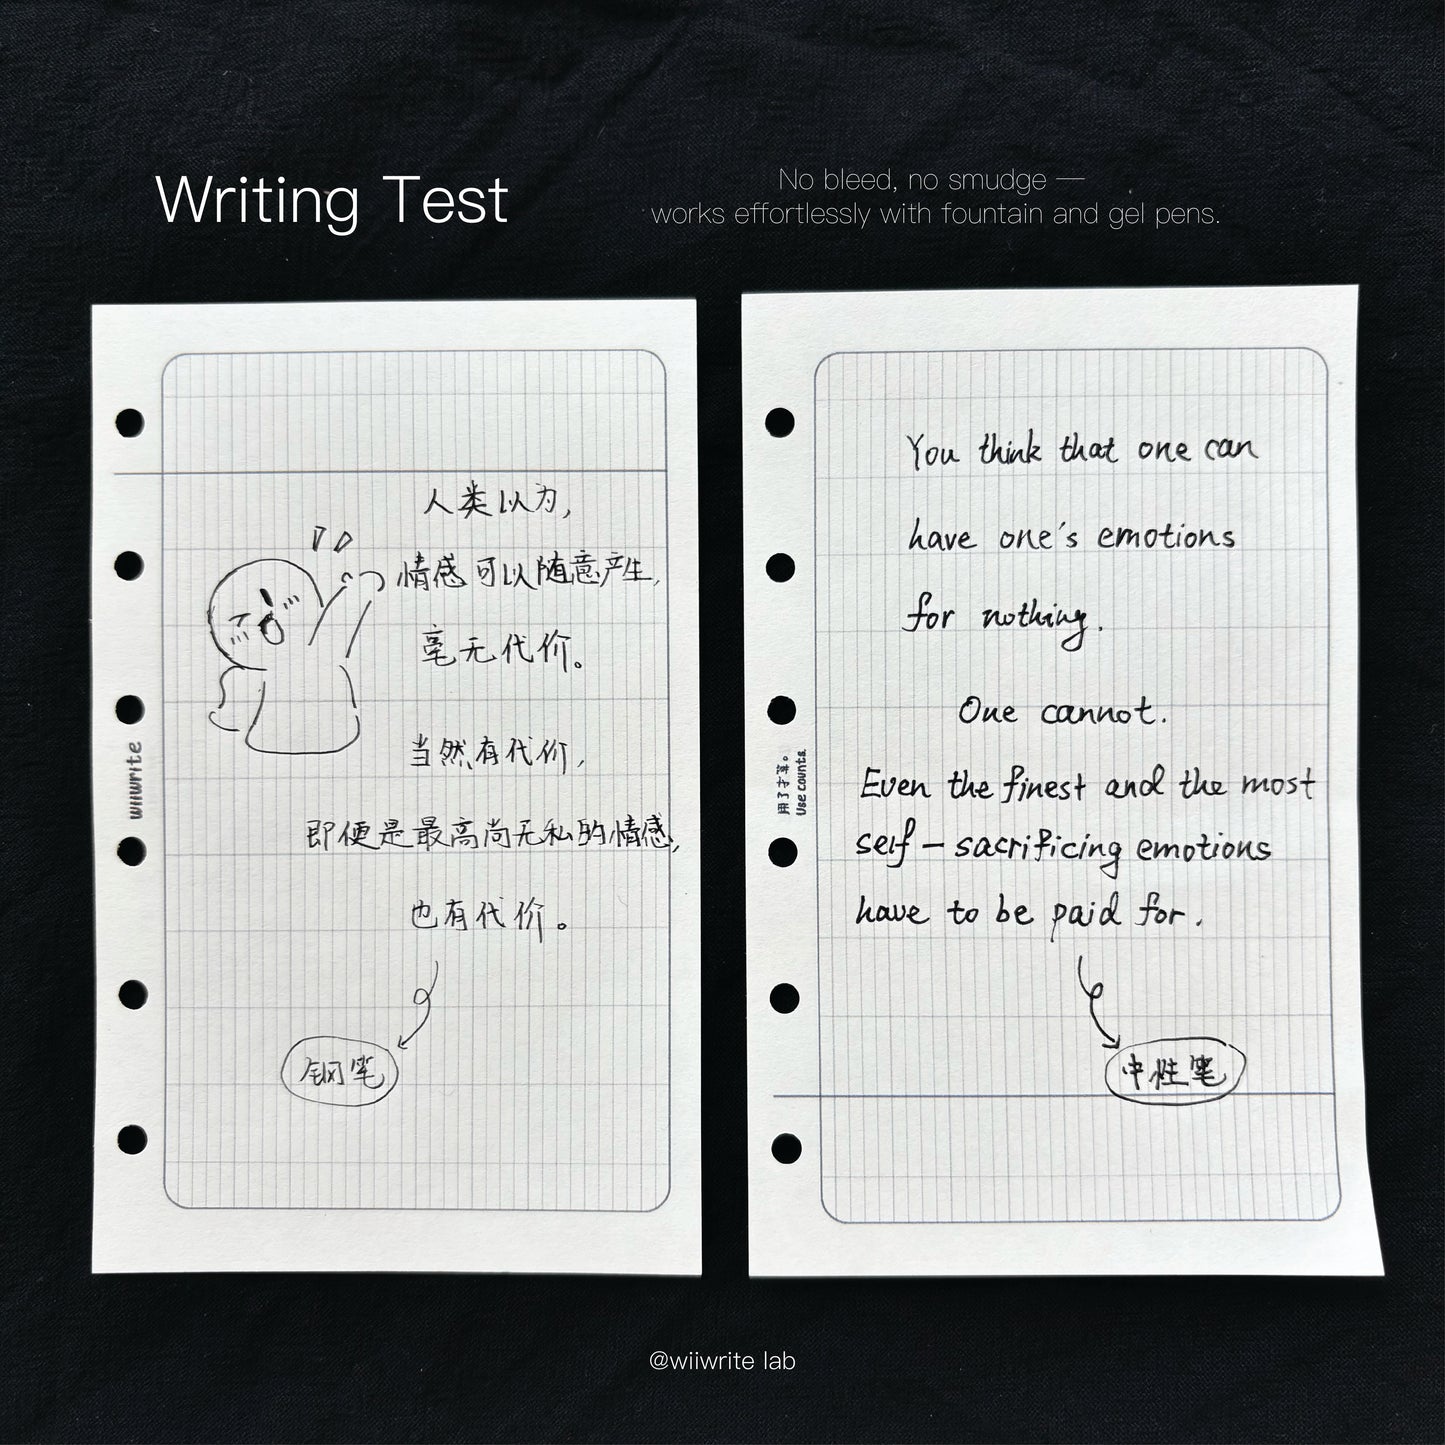 Writing Test
No bleed, no smudge —
works effortlessly with fountain and gel pens.
人类以为，
情感可以随意产生，
毫无代价。
当然有代价，
即便是最高尚无私的情感，
也有代价。
钢笔
wiiwrite
You think that one can
have one's emotions
for nothing.
One cannot.
Even the finest and the most
self-sacrificing emotions
have to be paid for.
中性笔
用了才算。
Use counts.
@wiiwrite lab